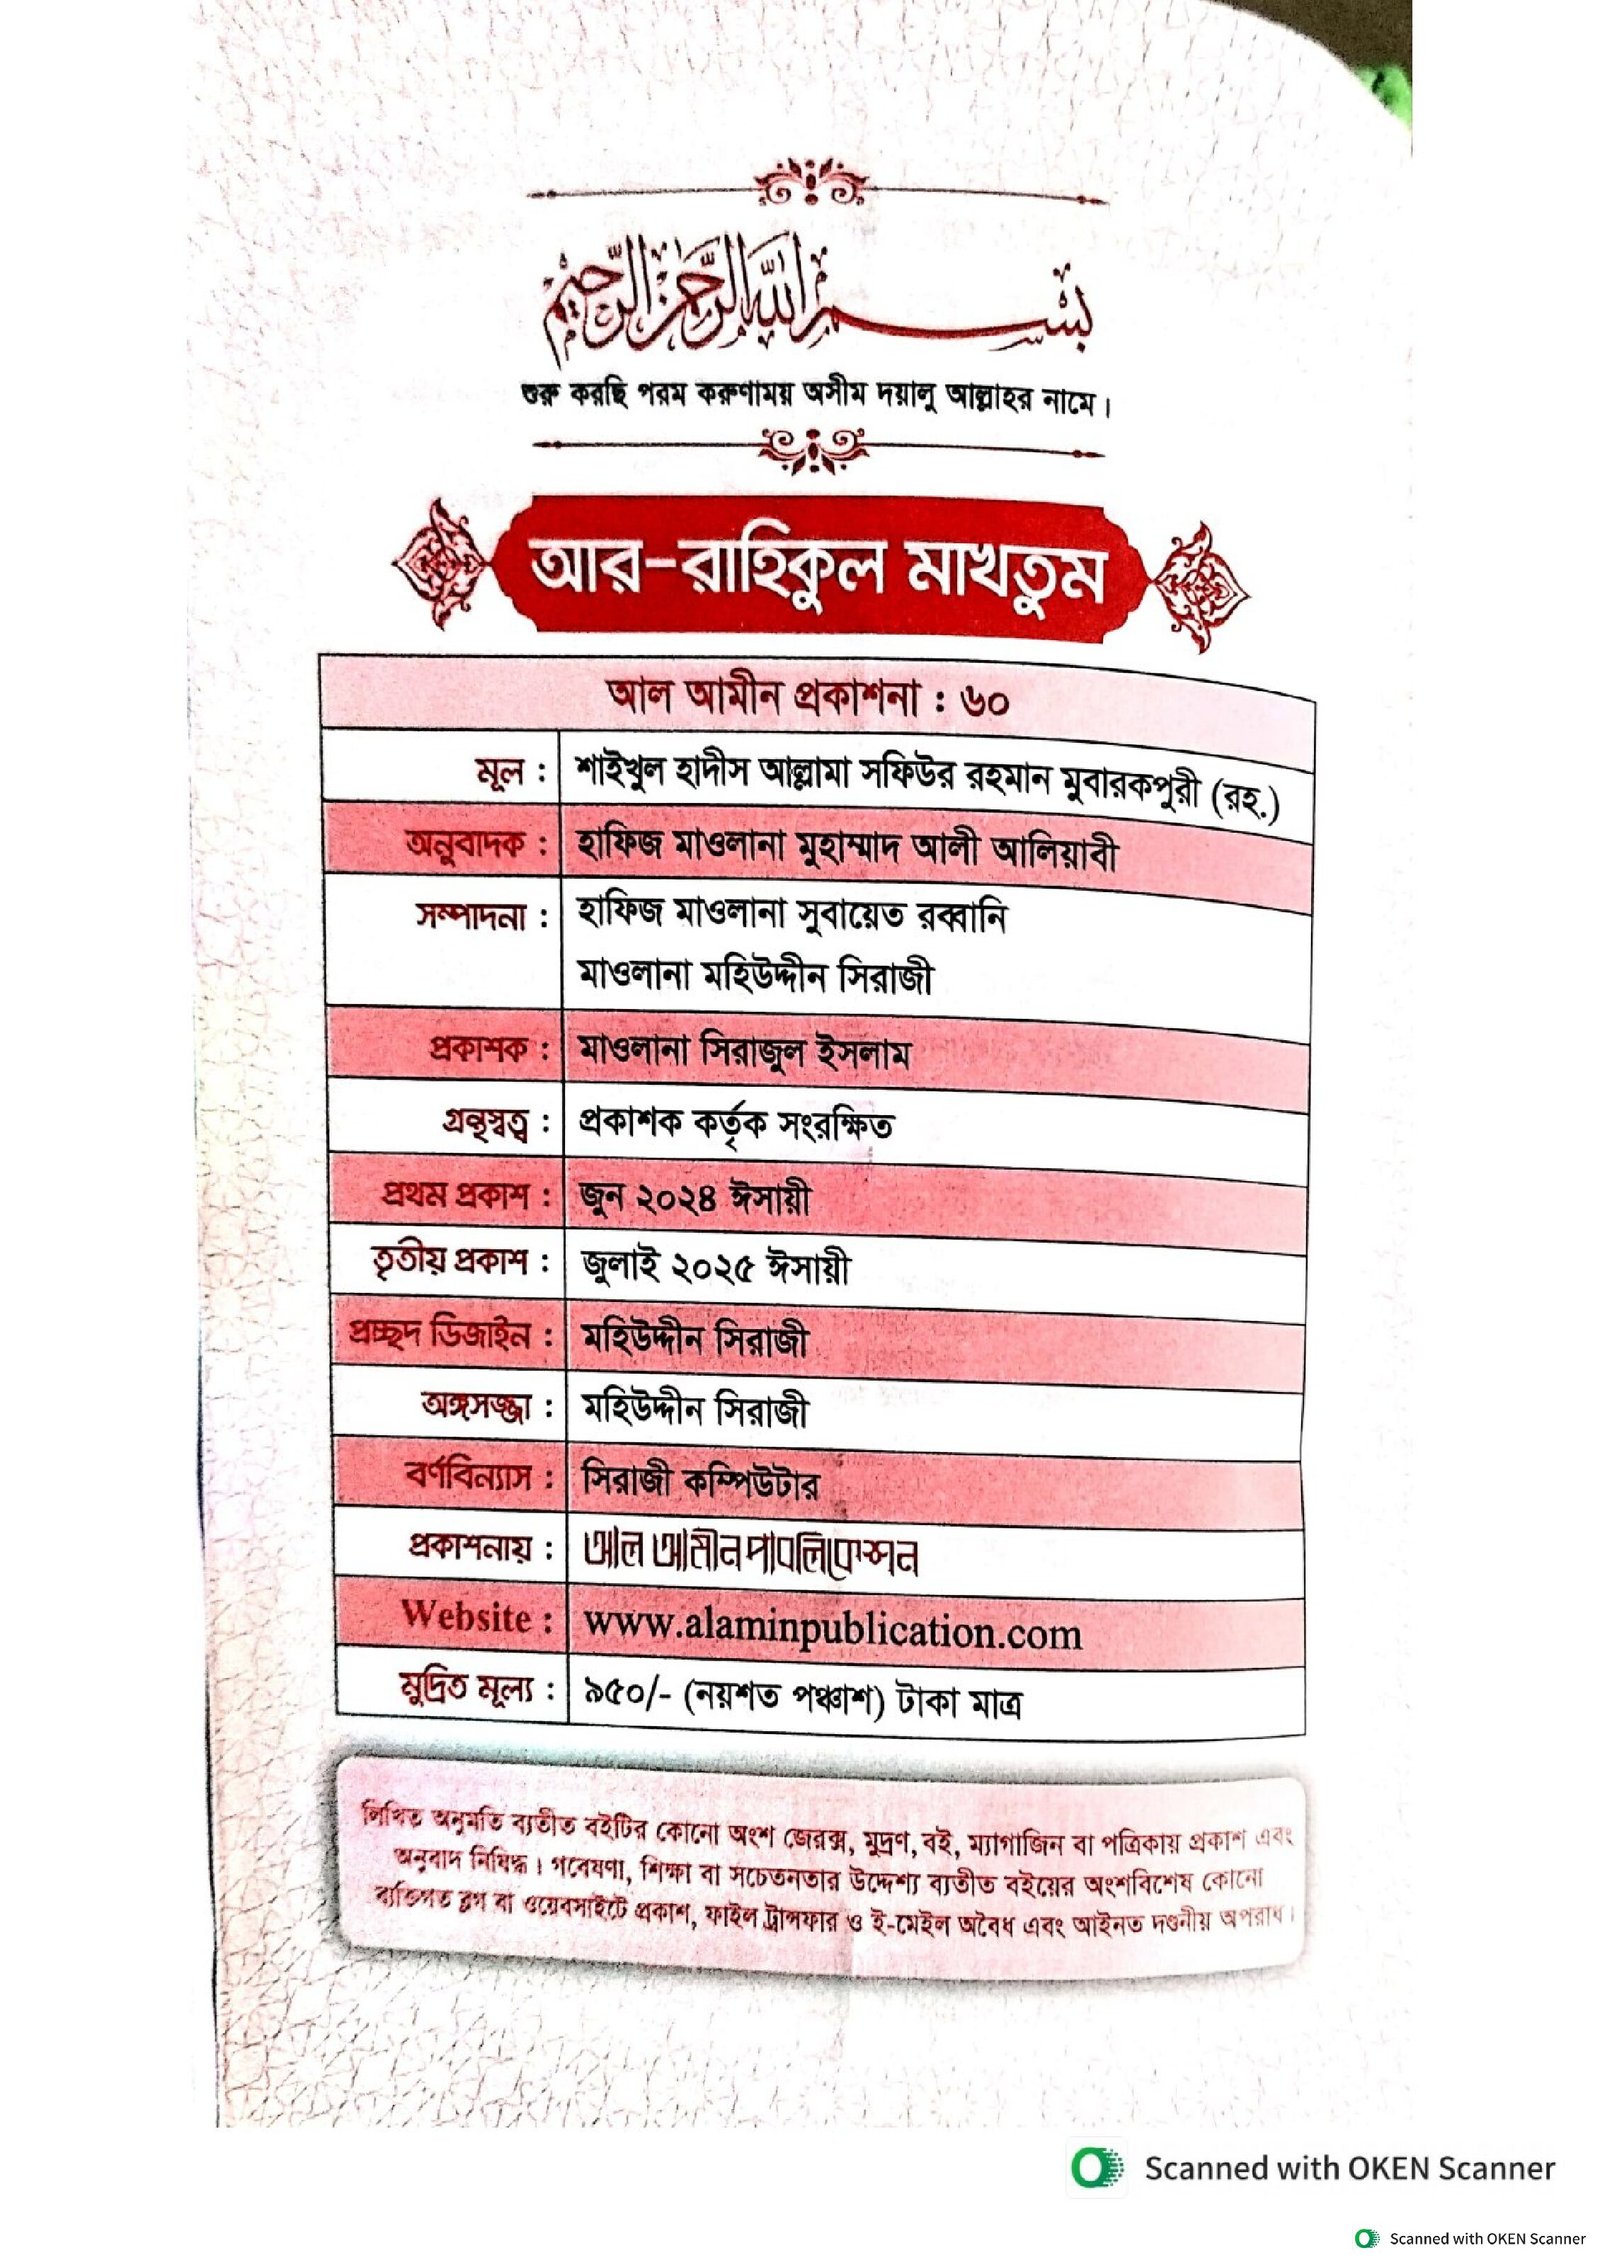 بسم الله الرحمن الرحيم
শুরু করছি পরম করুণাময় অসীম দয়ালু আল্লাহর নামে।
আর-রাহিকুল মাখতুম
আল আমীন প্রকাশনা : ৬০
মূল : শাইখুল হাদীস আল্লামা সফিউর রহমান মুবারকপুরী (রহ.)
অনুবাদক : হাফিজ মাওলানা মুহাম্মাদ আলী আলিয়াবী
সম্পাদনা : হাফিজ মাওলানা সুবায়েত রব্বানি
মাওলানা মহিউদ্দীন সিরাজী
প্রকাশক : মাওলানা সিরাজুল ইসলাম
গ্রন্থস্বত্ব : প্রকাশক কর্তৃক সংরক্ষিত
প্রথম প্রকাশ : জুন ২০২৪ ঈসায়ী
তৃতীয় প্রকাশ : জুলাই ২০২৫ ঈসায়ী
প্রচ্ছদ ডিজাইন : মহিউদ্দীন সিরাজী
অঙ্গসজ্জা : মহিউদ্দীন সিরাজী
বর্ণবিন্যাস : সিরাজী কম্পিউটার
প্রকাশনায় : আল আমীন পাবলিকেশন
Website : www.alaminpublication.com
মুদ্রিত মূল্য : ৯৫০/- (নয়শত পঞ্চাশ) টাকা মাত্র
লিখিত অনুমতি ব্যতীত বইটির কোনো অংশ জেরক্স, মুদ্রণ, বই, ম্যাগাজিন বা পত্রিকায় প্রকাশ এবং
অনুবাদ নিষিদ্ধ। গবেষণা, শিক্ষা বা সচেতনতার উদ্দেশ্য ব্যতীত বইয়ের অংশবিশেষ কোনো
ব্যক্তিগত ব্লগ বা ওয়েবসাইটে প্রকাশ, ফাইল ট্রান্সফার ও ই-মেইল অবৈধ এবং আইনত দণ্ডনীয় অপরাধ।
Scanned with OKEN Scanner
Scanned with OKEN Scanner